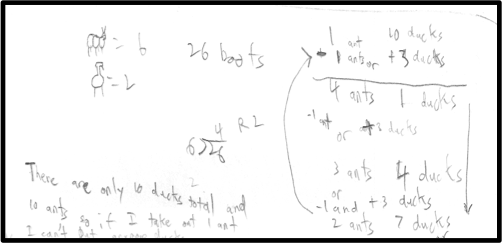 = 6
26 boots
= 2
4 R2
6 26
There are only 10 ducks total and
10 ants so if I take out 1 ant
I can't put
1 ant 10 ducks
- 1 or + 3 ducks
4 ants 1 ducks
-1 ant
or + 3 ducks
3 ants 4 ducks
or
-1 and + 3 ducks
2 ants 7 ducks